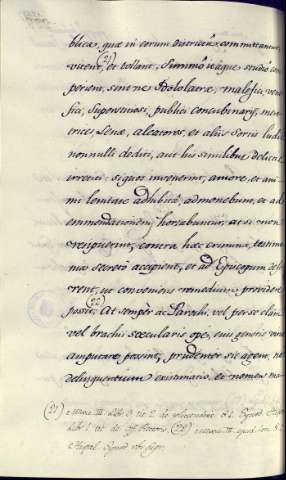 blica, quæ in eorum districtu committantur,
vitent, (21) et tollant. Summo itaque studio con
periem, sint ne Idololatræ, malefici, vene
fici, Superstitiosi, publici concubinarij, mere
trices, Lenæ, aleatores, et alijs Sortis ludis
nonnulli dediti, aut his similibus delictis
irretiti: siquos invenerint, amore, et ani
mi lenitate adhibita, admonebunt, et ad
emmendationem hortabuntur, at si non
resipuerint, contra hæc crimina, testimo
nia secreto accipient, et ad Episcopum defe
rent, ut conveniens remedium providere
possit. (22) At semper ac Parochi, vel per se
vel brachij sæcularis ope, cuius generis
amputare possint, prudenter sic agent, ne
delinquentium existimatio, et nomen ma
(21) Lib. 3. tit. 2. §. 1.
lib. 1. tit. de off. Rectoris (22)